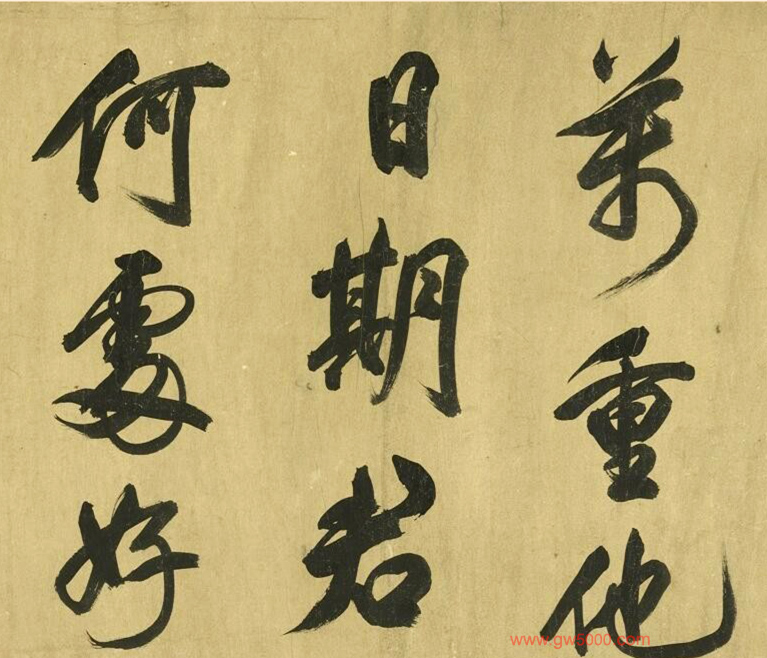 萬重他
日期君
何處好
www.gw5000.com